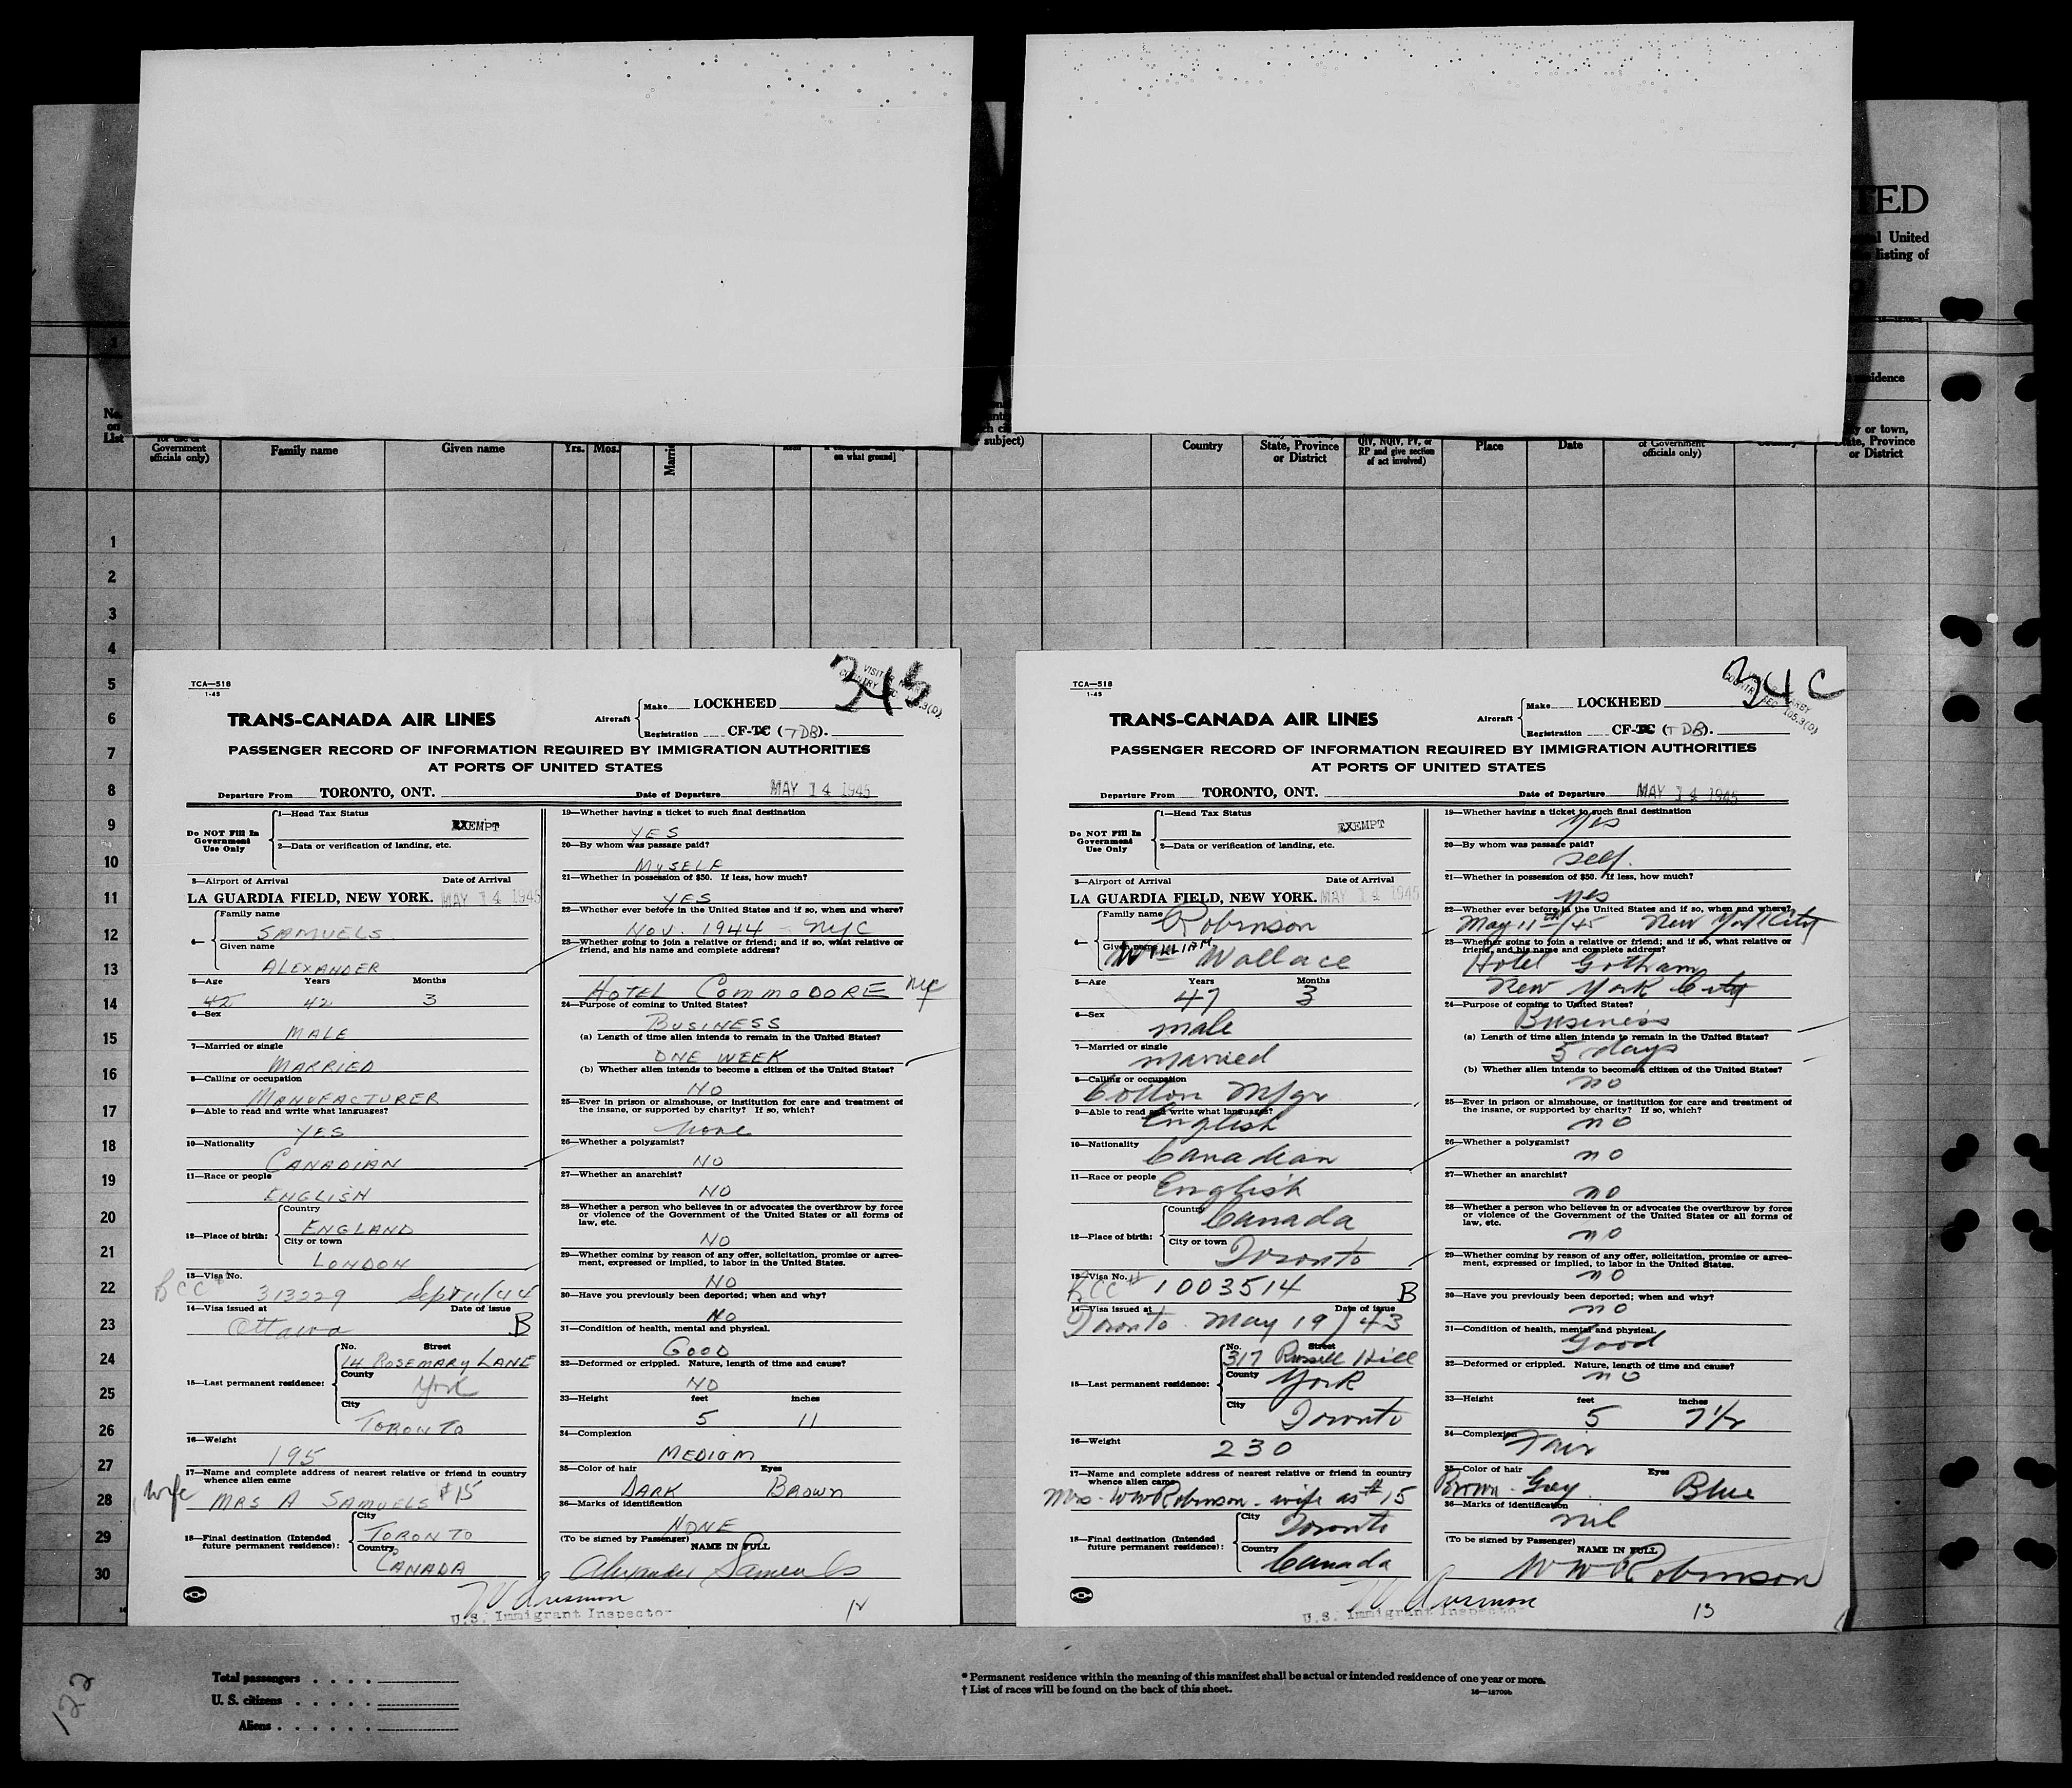 TED
al United
listing of
residence
No.
on
List
for use of
Government
officials only)
Family name
Given name
Yrs.
Mos.
Marri
on what ground]
subject)
Country
State, Province
or District
QIV, NQIV, PV, or
RP and give section
of act involved)
Place
Date
of Government
officials only)
y or town,
State, Province
or District
1
2
3
4
5
6
7
8
9
10
11
12
13
14
15
16
17
18
19
20
21
22
23
24
25
26
27
28
29
30
TCA—518
1-45
345
TRANS-CANADA AIR LINES
Aircraft
Make LOCKHEED
Registration CF-TC (TDB).
PASSENGER RECORD OF INFORMATION REQUIRED BY IMMIGRATION AUTHORITIES
AT PORTS OF UNITED STATES
Departure From TORONTO, ONT.
Date of Departure MAY 14 1945
Do NOT Fill In
Government
Use Only
1—Head Tax Status
EXEMPT
2—Data or verification of landing, etc.
3—Airport of Arrival Date of Arrival
LA GUARDIA FIELD, NEW YORK. MAY 14 1945
4—
Family name
SAMUELS
Given name
ALEXANDER
5—Age Years Months
42 42 3
6—Sex
MALE
7—Married or single
MARRIED
8—Calling or occupation
MANUFACTURER
9—Able to read and write what languages?
YES
10—Nationality
CANADIAN
11—Race or people
ENGLISH
12—Place of birth:
Country
ENGLAND
City or town
LONDON
13—Visa No.
BCC # 313229 Sept 11/44
14—Visa issued at Date of issue
Ottawa B
15—Last permanent residence:
No. Street
14 ROSEMARY LANE
County
York
City
TORONTO
16—Weight
195
17—Name and complete address of nearest relative or friend in country
whence alien came
wife MRS A SAMUELS #15
18—Final destination (Intended
future permanent residence):
City
TORONTO
Country
CANADA
19—Whether having a ticket to such final destination
YES
20—By whom was passage paid?
MYSELF
21—Whether in possession of $50. If less, how much?
YES
22—Whether ever before in the United States and if so, when and where?
NOV. 1944 - NYC
23—Whether going to join a relative or friend; and if so, what relative or
friend, and his name and complete address?
HOTEL COMMODORE NYC
24—Purpose of coming to United States?
BUSINESS
(a) Length of time alien intends to remain in the United States?
ONE WEEK
(b) Whether alien intends to become a citizen of the United States?
NO
25—Ever in prison or almshouse, or institution for care and treatment of
the insane, or supported by charity? If so, which?
none
26—Whether a polygamist?
NO
27—Whether an anarchist?
NO
28—Whether a person who believes in or advocates the overthrow by force
or violence of the Government of the United States or all forms of
law, etc.
NO
29—Whether coming by reason of any offer, solicitation, promise or agree-
ment, expressed or implied, to labor in the United States.
NO
30—Have you previously been deported; when and why?
NO
31—Condition of health, mental and physical.
GOOD
32—Deformed or crippled. Nature, length of time and cause?
NO
33—Height feet inches
5 11
34—Complexion
MEDIUM
35—Color of hair Eyes
DARK BROWN
36—Marks of identification
NONE
(To be signed by Passenger)
NAME IN FULL
Alexander Samuels
U.S. Immigrant Inspector
TCA—518
1-45
TRANS-CANADA AIR LINES
Aircraft
Make LOCKHEED
Registration CF-TC (TDB).
PASSENGER RECORD OF INFORMATION REQUIRED BY IMMIGRATION AUTHORITIES
AT PORTS OF UNITED STATES
Departure From TORONTO, ONT.
Date of Departure MAY 14 1945
Do NOT Fill In
Government
Use Only
1—Head Tax Status
EXEMPT
2—Data or verification of landing, etc.
3—Airport of Arrival Date of Arrival
LA GUARDIA FIELD, NEW YORK. MAY 14 1945
4—
Family name
Robinson
Given name
WILLIAM Wallace
5—Age Years Months
47 3
6—Sex
male
7—Married or single
married
8—Calling or occupation
Cotton Mfgr
9—Able to read and write what languages?
English
10—Nationality
Canadian
11—Race or people
English
12—Place of birth:
Country
Canada
City or town
Toronto
13—Visa No.
BCC # 1003514 B
14—Visa issued at Date of issue
Toronto May 19/43
15—Last permanent residence:
No. Street
317 Russell Hill
County
York
City
Toronto
16—Weight
230
17—Name and complete address of nearest relative or friend in country
whence alien came
Mrs. WW Robinson - wife as #15
18—Final destination (Intended
future permanent residence):
City
Toronto
Country
Canada
19—Whether having a ticket to such final destination
yes
20—By whom was passage paid?
self.
21—Whether in possession of $50. If less, how much?
yes
22—Whether ever before in the United States and if so, when and where?
May 11th/45 New York City
23—Whether going to join a relative or friend; and if so, what relative or
friend, and his name and complete address?
Hotel Gotham
New York City
24—Purpose of coming to United States?
Business
(a) Length of time alien intends to remain in the United States?
5 days
(b) Whether alien intends to become a citizen of the United States?
no
25—Ever in prison or almshouse, or institution for care and treatment of
the insane, or supported by charity? If so, which?
no
26—Whether a polygamist?
no
27—Whether an anarchist?
no
28—Whether a person who believes in or advocates the overthrow by force
or violence of the Government of the United States or all forms of
law, etc.
no
29—Whether coming by reason of any offer, solicitation, promise or agree-
ment, expressed or implied, to labor in the United States.
no
30—Have you previously been deported; when and why?
no
31—Condition of health, mental and physical.
Good
32—Deformed or crippled. Nature, length of time and cause?
no
33—Height feet inches
5 7 1/2
34—Complexion
Fair
35—Color of hair Eyes
Brown-Grey Blue
36—Marks of identification
nil
(To be signed by Passenger)
NAME IN FULL
W W Robinson
U.S. Immigrant Inspector
13
Total passengers
U. S. citizens
Aliens
* Permanent residence within the meaning of this manifest shall be actual or intended residence of one year or more.
† List of races will be found on the back of this sheet.
122